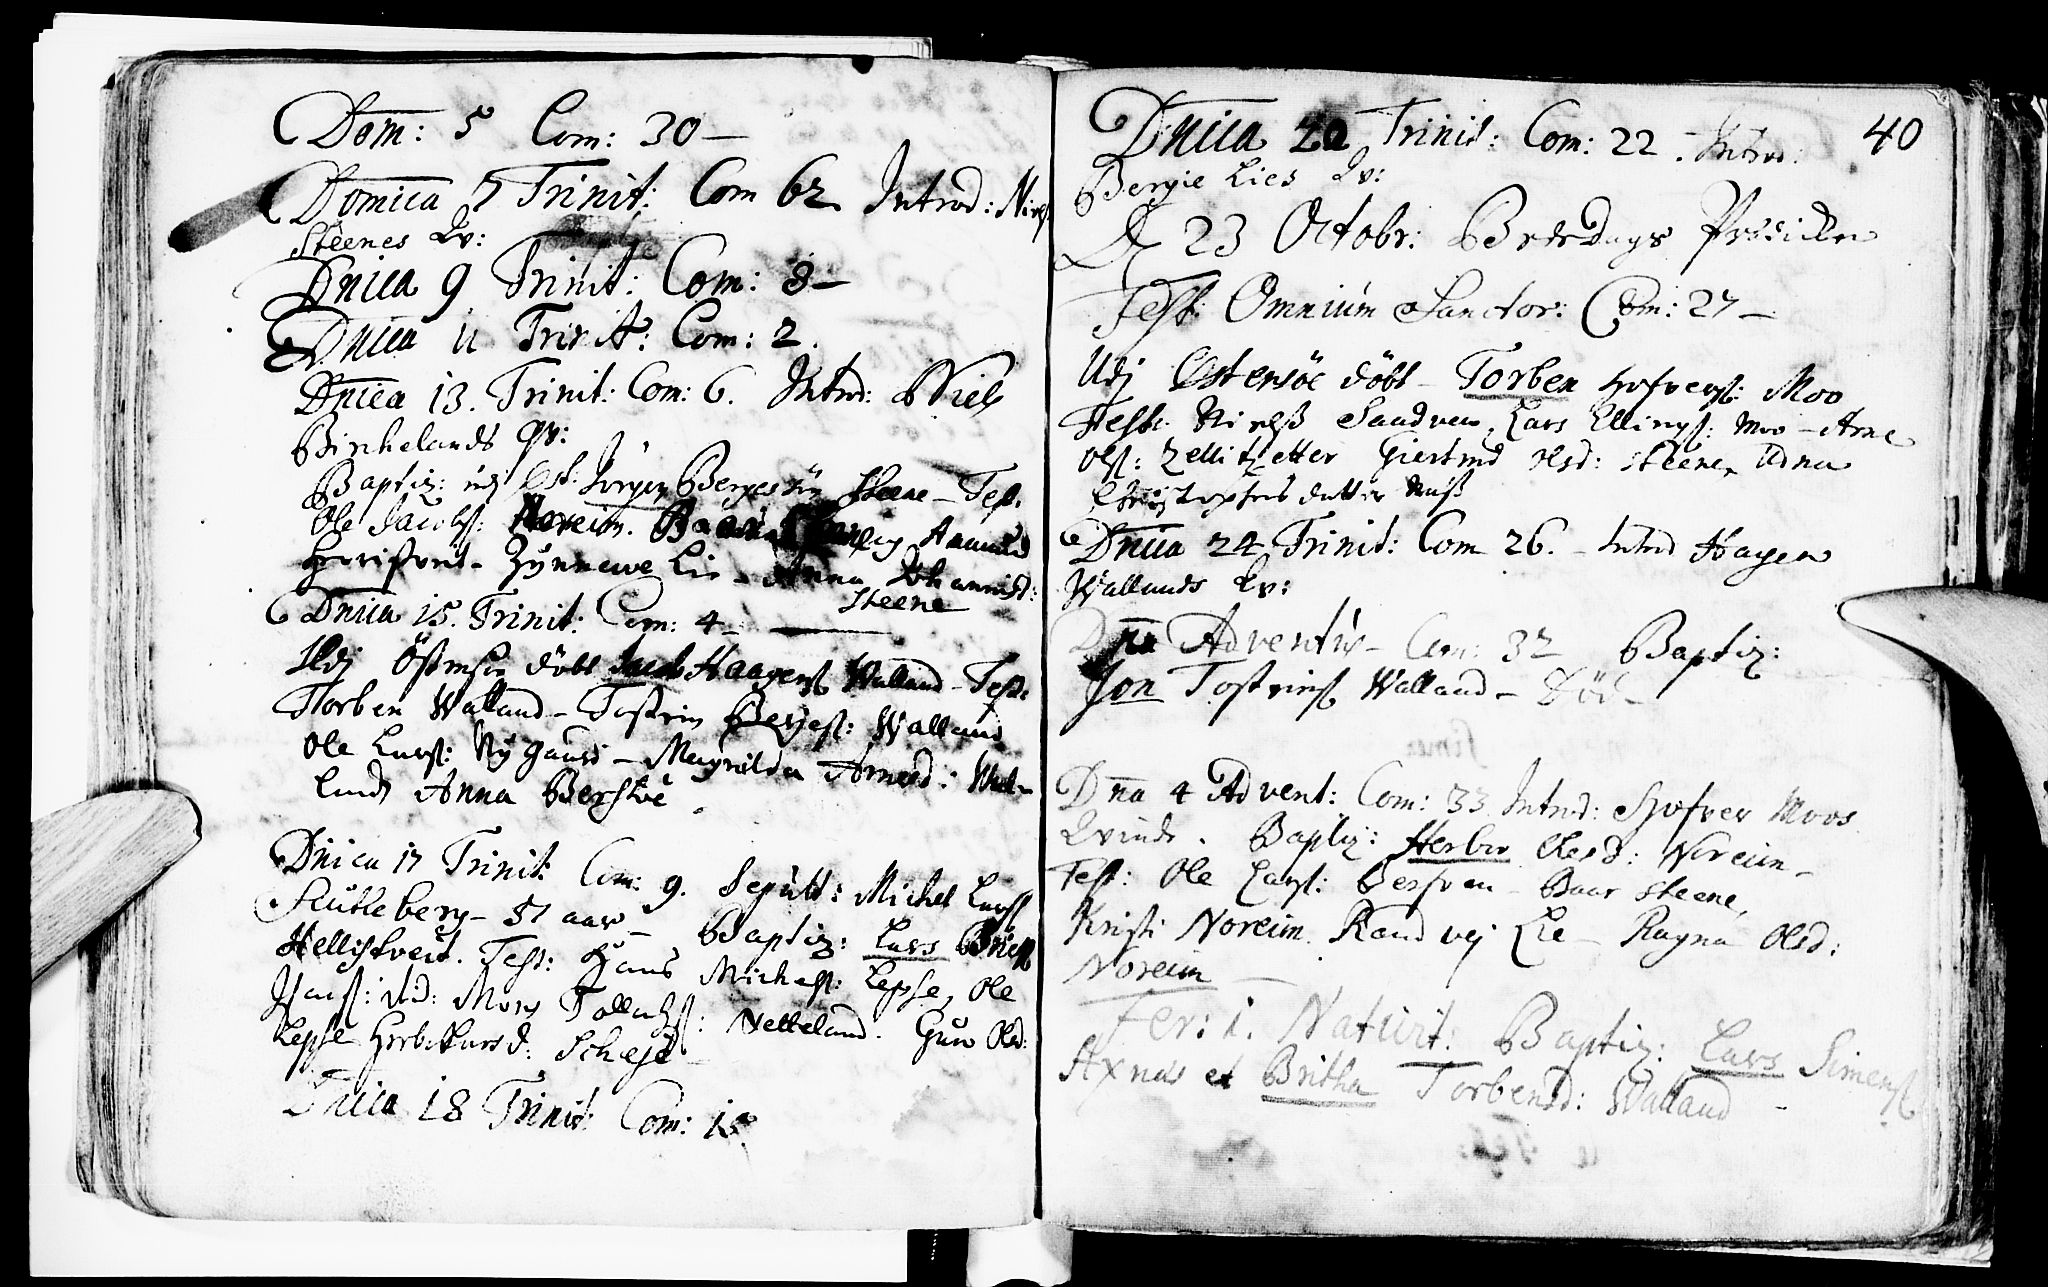 Dom: 5 Com: 30 –
Domica 7 Trinit: Com 62 Introd: Niels
Steenes Qv:
Dnica 9 Trinit: Com: 8 –
Dnica 11 Trinit: Com: 2.
Dnica 13. Trinit: Com: 6. Introd: Niels
Birkelands qv:
Baptiz: udj Øst: Jörgen Bergesön Steene – Test:
Ole Jacobs: Noreim. Aamund
Zynnewe Lie – Anna Johannisd:
Steene
Dnica 15. Trinit: Com: 4 –
Udj Östensöe döbt Jacob Haagens Walland – Test:
Torben Walland – Tostein Berges: Walland
Ole Lars: Nygaard – Magnilda Arnesd: Wal-
lands Anna Berstöe
Dnica 17 Trinit: Com: 9. Sepult: Michel Larss
Skutleberg – 57 aar – Baptiz: Lars
Hellistveit. Test: Hans Michels: Lepsse, Ole
ibid: Mons Netteland. Guro Olsd:
Lepse
Dnica 18 Trinit: Com: 15.
40
Dnica 20 Trinit: Com: 22. – Introd:
Bergie Lies Qv:
D 23 Octobr: Beededags Prædicken
Fest: Omnium Sanctor: Com: 27 –
Udj Östensöe döbt – Torben Hofvers: Moo
Test: Niels Sandven, Lars Ellings: Moo – Arne
Ols: Giertrud Olsd: Steene, Udna
Christophers datter
Dnica 24 Trinit: Com 26. – Introd Hagen
Wallands Qv:
Dna Adventus – Com: 32 Baptiz:
Jon Tosteins Walland – Död –
Dna 4 Advent: Com: 33 Introd: Hofver Moos
Qvinde. Baptiz: Herbor Olesd: Noreim –
Test: Ole Lars: Berven – Baar Steene,
Kristi Noreim. Randvej Lie – Ragna Olsd:
Noreim –
Fer: 1. Nativit: Baptiz: Lars Simens
Axnes et Britha Torbensd: Walland –